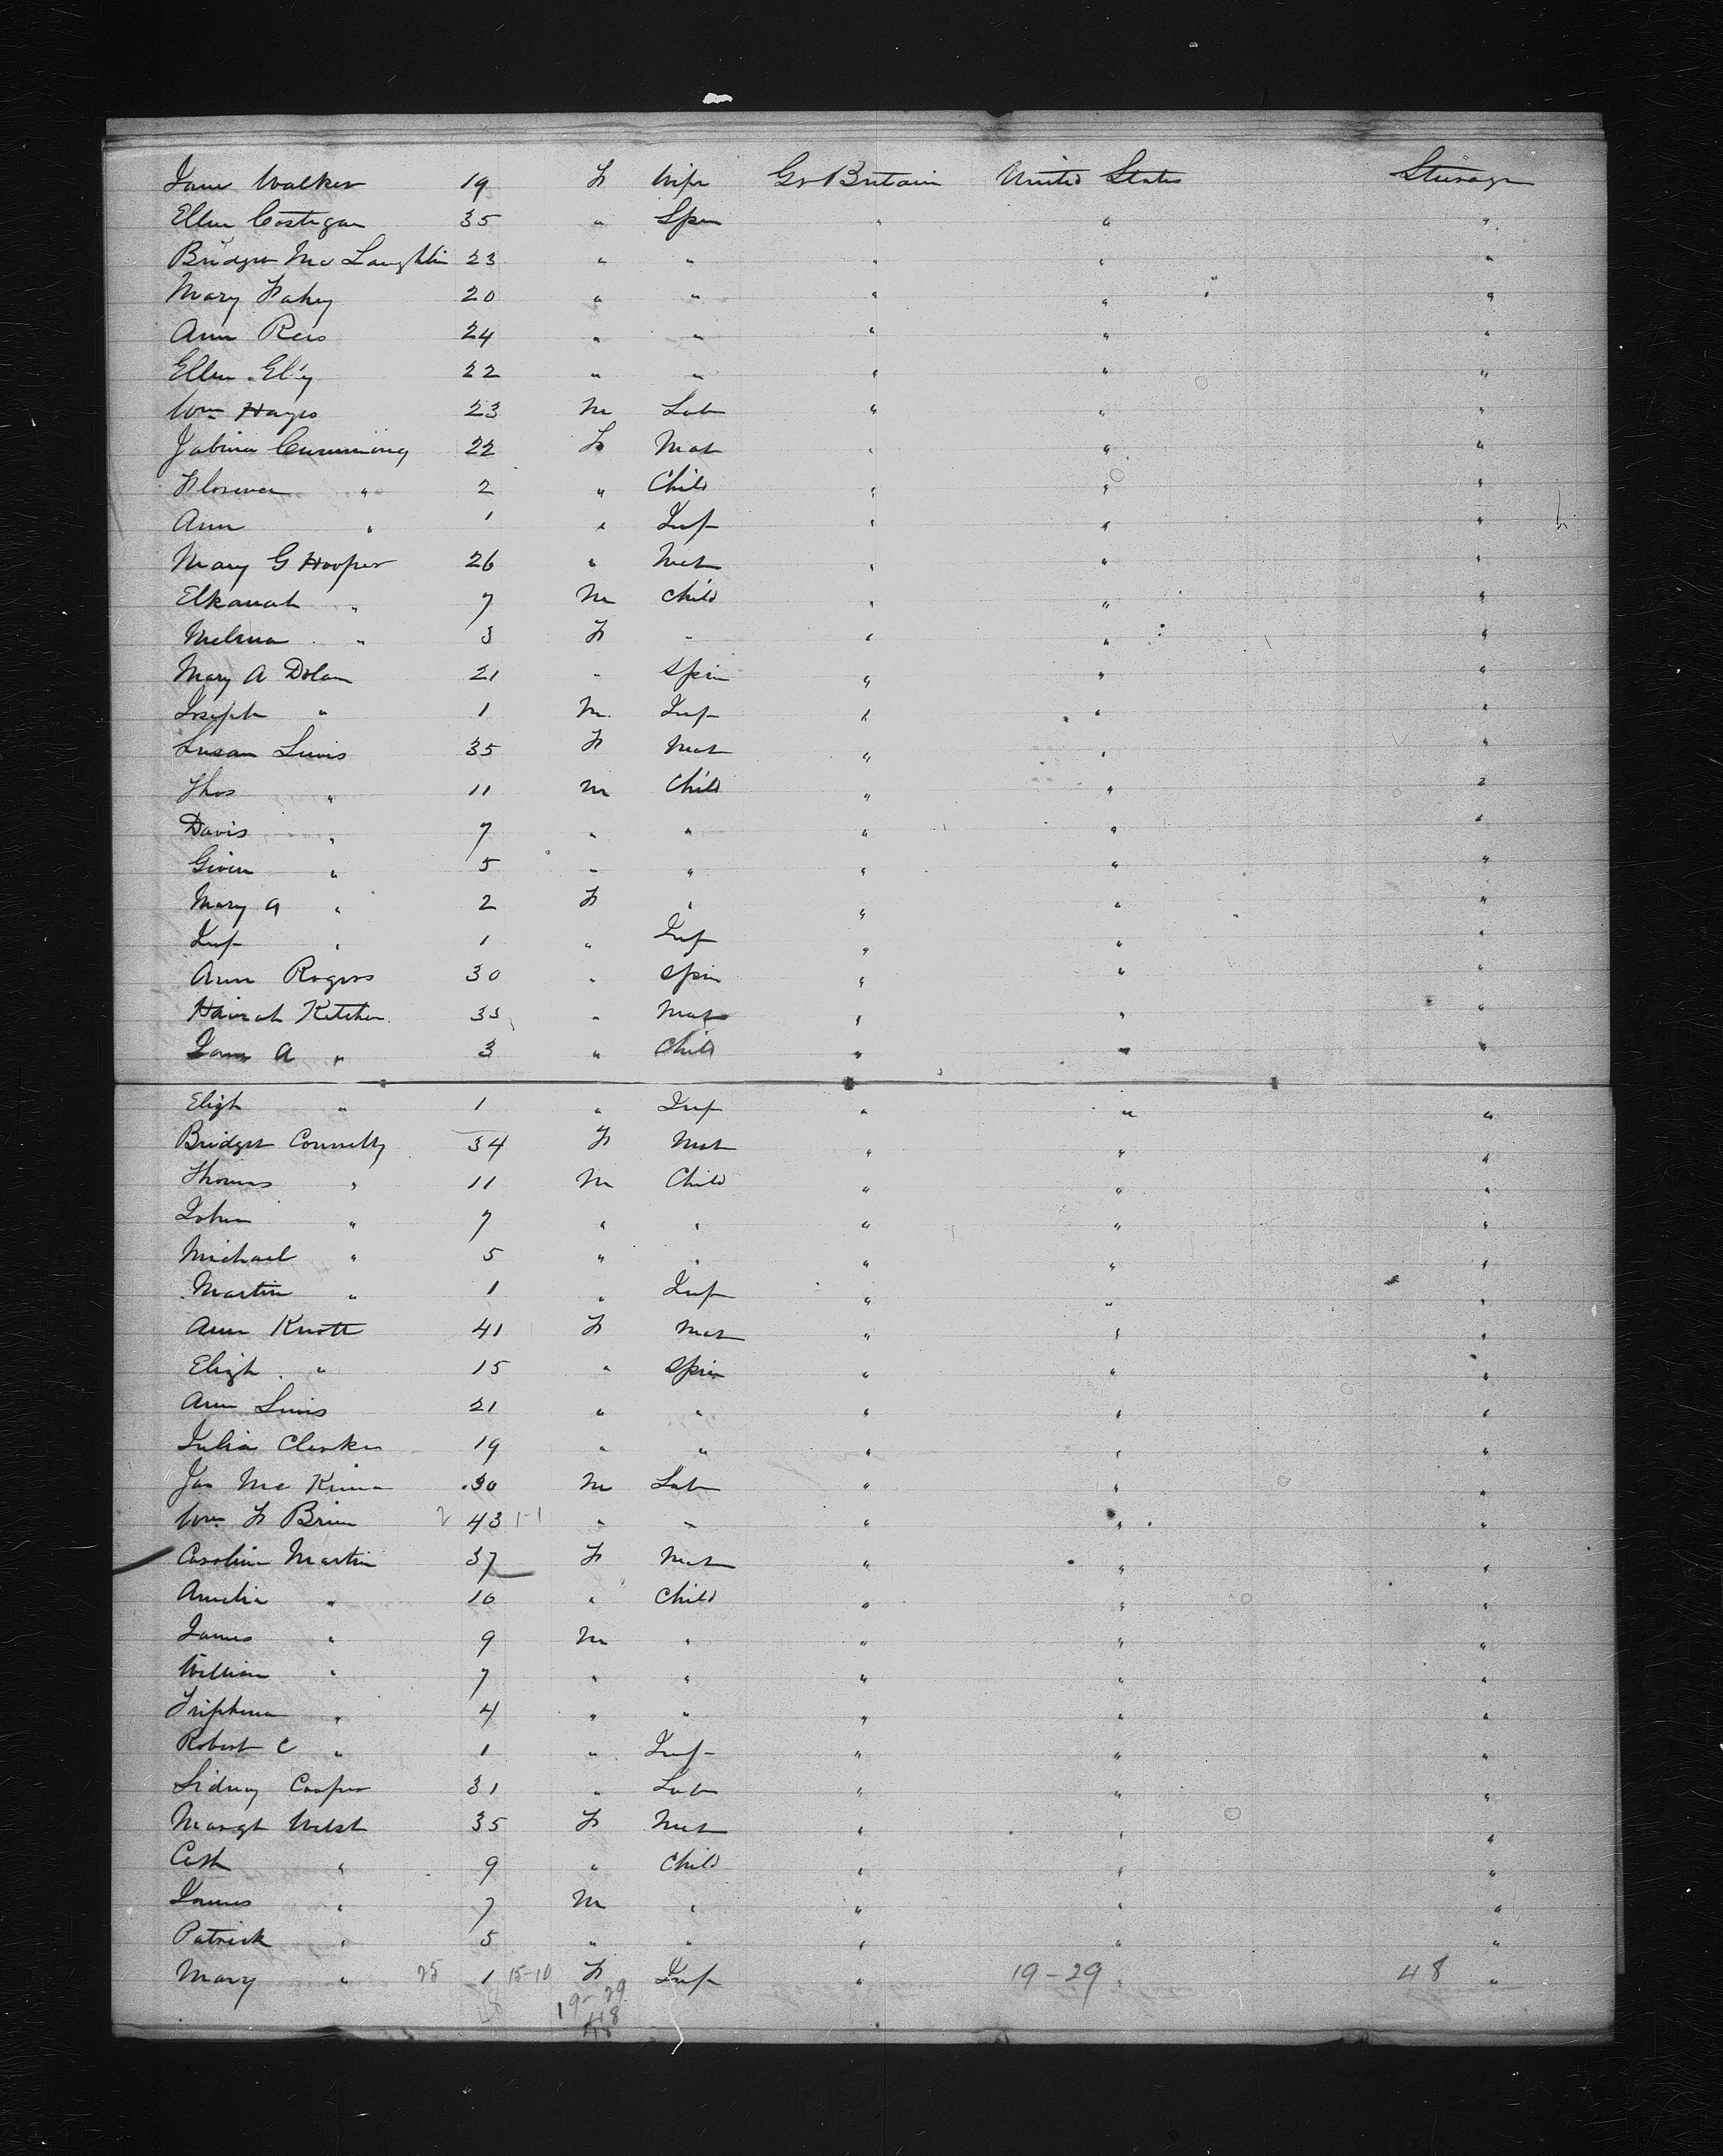 Jane Walker 19 F Wife Gr Britain United States Steerage
Ellen Costigan 35 " Spin " " "
Bridget Mc Laughlin 23 " " " " "
Mary Fahey 20 " " " " "
Ann Rees 24 " " " " "
Ellen 22 " " " " "
Wm Hayes 23 M Lab " " "
Jabina Cumming 22 F Mat " " "
Florence " 2 " Child " " "
Ann " 1 " Inf " " "
Mary G Hooper 26 " Mat " " "
Elkanah " 7 M Child " " "
Melina " 3 F " " " "
Mary A Dolan 21 " Spin " " "
Joseph " 1 M Inf " " "
Susan Lewis 35 F Mat " " "
Thos " 11 M Child " " "
David " 7 " " " " "
Given " 5 " " " " "
Mary A " 2 F " " " "
Inf " 1 " Inf " " "
Ann Rogers 30 " Spin " " "
Hanah Kitchen 33 " Mat " " "
A " 3 " Child " " "
Elizh " 1 " Inf " " "
Bridget Connelly 34 F Mat " " "
Thomas " 11 M Child " " "
John " 7 " " " " "
Michael " 5 " " " " "
Martin " 1 " Inf " " "
Ann Knott 41 F Mat " " "
Elizh " 15 " Spin " " "
Ann Lewis 21 " " " " "
Julia Clerkin 19 " " " " "
Jas Mc 30 M Lab " " "
Wm F Brien 43 1-1 " " " " "
Caroline Martin 37 F Mat " " "
Amelia " 10 " Child " " "
James " 9 M " " " "
William " 7 " " " " "
Triphena " 4 " " " " "
Robert C " 1 " Inf " " "
Sidney Cooper 31 " Lab " " "
Margt Welsh 35 F Mat " " "
Cath " 9 " Child " " "
James " 7 M " " " "
Patrick " 5 " " " " "
Mary " 25 1 15-10 F Inf " 19-29 " 48 "
19-29
48
48